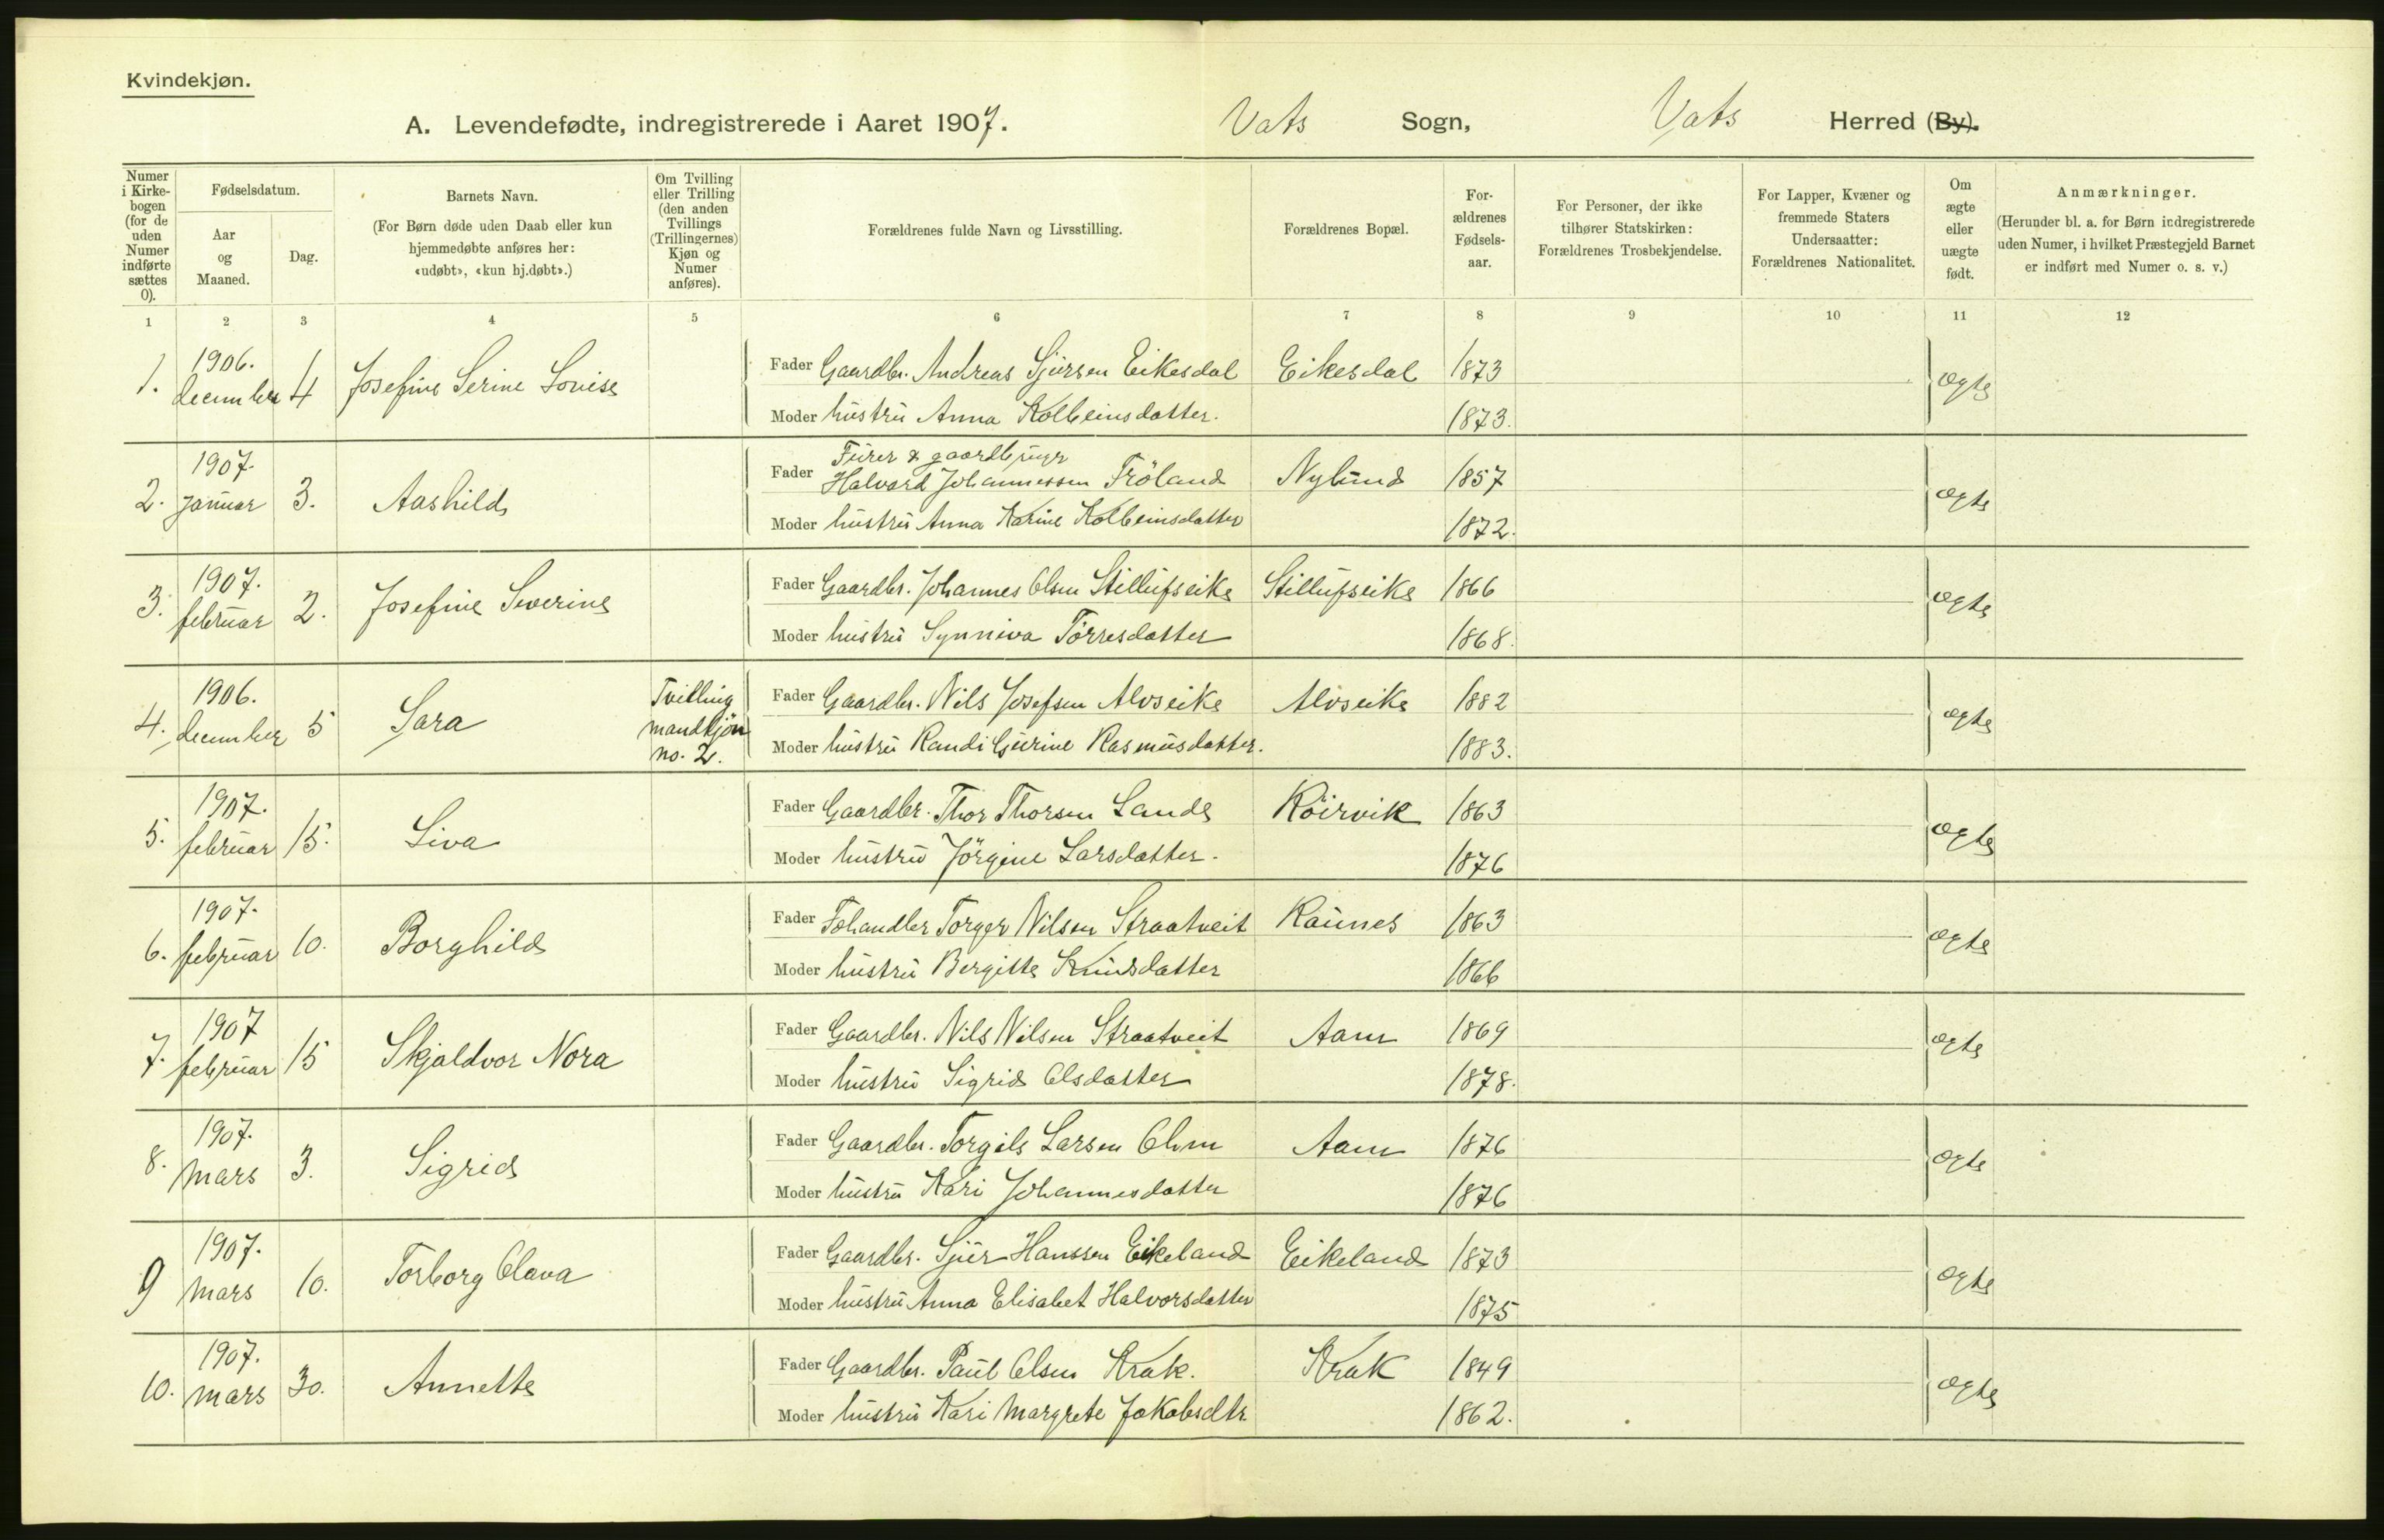 Kvindekjøn.
A. Levendefødte, indregistrerede i Aaret 1907. Vats Sogn, Vats Herred (By).
Numer i Kirkebogen (for de uden Numer indførte sættes 0).
Fødselsdatum.
Aar og Maaned.
Dag.
Barnets Navn.
(For Børn døde uden Daab eller kun hjemmedøbte anføres her: «udøbt», «kun hj.døbt».)
Om Tvilling eller Trilling (den anden Tvillings (Trillingernes) Kjøn og Numer anføres).
Forældrenes fulde Navn og Livsstilling.
Forældrenes Bopæl.
For-ældrenes Fødsels-aar.
For Personer, der ikke tilhører Statskirken: Forældrenes Trosbekjendelse.
For Lapper, Kvæner og fremmede Staters Undersaatter: Forældrenes Nationalitet.
Om ægte eller uægte født.
Anmærkninger.
(Herunder bl. a. for Børn indregistrerede uden Numer, i hvilket Præstegjeld Barnet er indført med Numer o. s. v.)
1 2 3 4 5 6 7 8 9 10 11 12
1. 1906. december 4 Josefine Serine Lovise Fader Gaardbr. Andreas Sjursen Eikesdal Eikesdal 1873 ægte
Moder hustru Anna Kolbeinsdatter. 1873.
2. 1907. januar 3. Aashild Fader Furer & gaardbruger Halvard Johannessen Fröland Nylund 1857 ægte
Moder hustru Anna Karine Kolbeinsdatter 1872.
3. 1907. februar 2. Josefine Severine Fader Gaardbr. Johannes Olsen Stillufseike Stillufseike 1866 ægte
Moder hustru Synniva Törresdatter 1868.
4. 1906. december 5 Sara Tvilling mandkjön no. 2. Fader Gaardbr. Nils Josefsen Alvseike Alvseike 1882 ægte
Moder hustru Randi Gurine Rasmusdatter. 1883.
5. 1907. februar 15. Siva Fader Gaardbr. Thor Thorsen Lande Röirvik 1863 ægte
Moder hustru Jörgine Larsdatter. 1876
6. 1907. februar 10. Borghild Fader Torger Nilsen Straatveit Raunes 1863 ægte
Moder hustru Bergitte Knudsdatter 1866
7. 1907 februar 15 Skjaldvor Nora Fader Gaardbr. Nils Nilsen Straatveit Aam 1869 ægte
Moder hustru Sigrid Olsdatter 1878.
8. 1907. mars 3. Sigrid Fader Gaardbr. Torgils Larsen Aam 1876 ægte
Moder hustru Kari Johannesdatter 1876
9 1907. mars 10. Torborg Olava Fader Gaardbr. Sjur Hanssen Eikeland Eikeland 1873 ægte
Moder hustru Anna Elisabet Halvorsdatter 1875
10. 1907. mars 30. Annette Fader Gaardbr. Paul Olsen Krak. Krak 1849 ægte
Moder hustru Kari Margrete Jakobsdtr 1862.